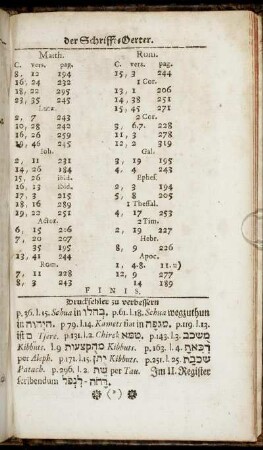 der Schrifft-Oerter.
Matth.
C. vers. pag.
8, 12 194
16, 24 232
18, 22 295
23, 35 245
Luca.
2, 7 243
10, 28 242
16, 26 259
19, 46 245
Joh.
2, 11 230
14, 26 184
15, 26 ibid.
16, 13 ibid.
17, 3 235
18, 22 295
Actor.
6, 15 206
7, 20 207
35 195
13, 41 244
Rom.
7, 11 228
8, 3 243
Rom.
C. vers. pag.
15, 3 244
1 Cor.
13, 1 206
14, 38 251
15, 45 271
2 Cor.
3, 6.7. 228
11, 3 278
12, 2 319
Gal.
3, 19 195
4, 4 243
Ephes.
2, 3 194
5, 18 285
1 Thessal.
4, 17 253
2 Tim.
2, 19 221
Hebr.
8, 9 226
Apoc.
1, 4.8.
12, 9 277
14 189
FINIS.
Druckfehler zu verbessern
p. 36. l. 15. Schua in בחלו p. 61. l. 18. Schua wegzuthun
in p. 79. l. 14. Kamets fiat in p. 119. l. 13.
ist Tjere. l. 2. Chirek
Kibbuts. l. 9 Kibbuts. p. 163. l. 4.
per Aleph. p. 171. l. 15. יתן Kibbuts. p. 251. l. 25. שכבת
Patach. p. 296. l. 2. per Tau. Im II. Register
scribendum